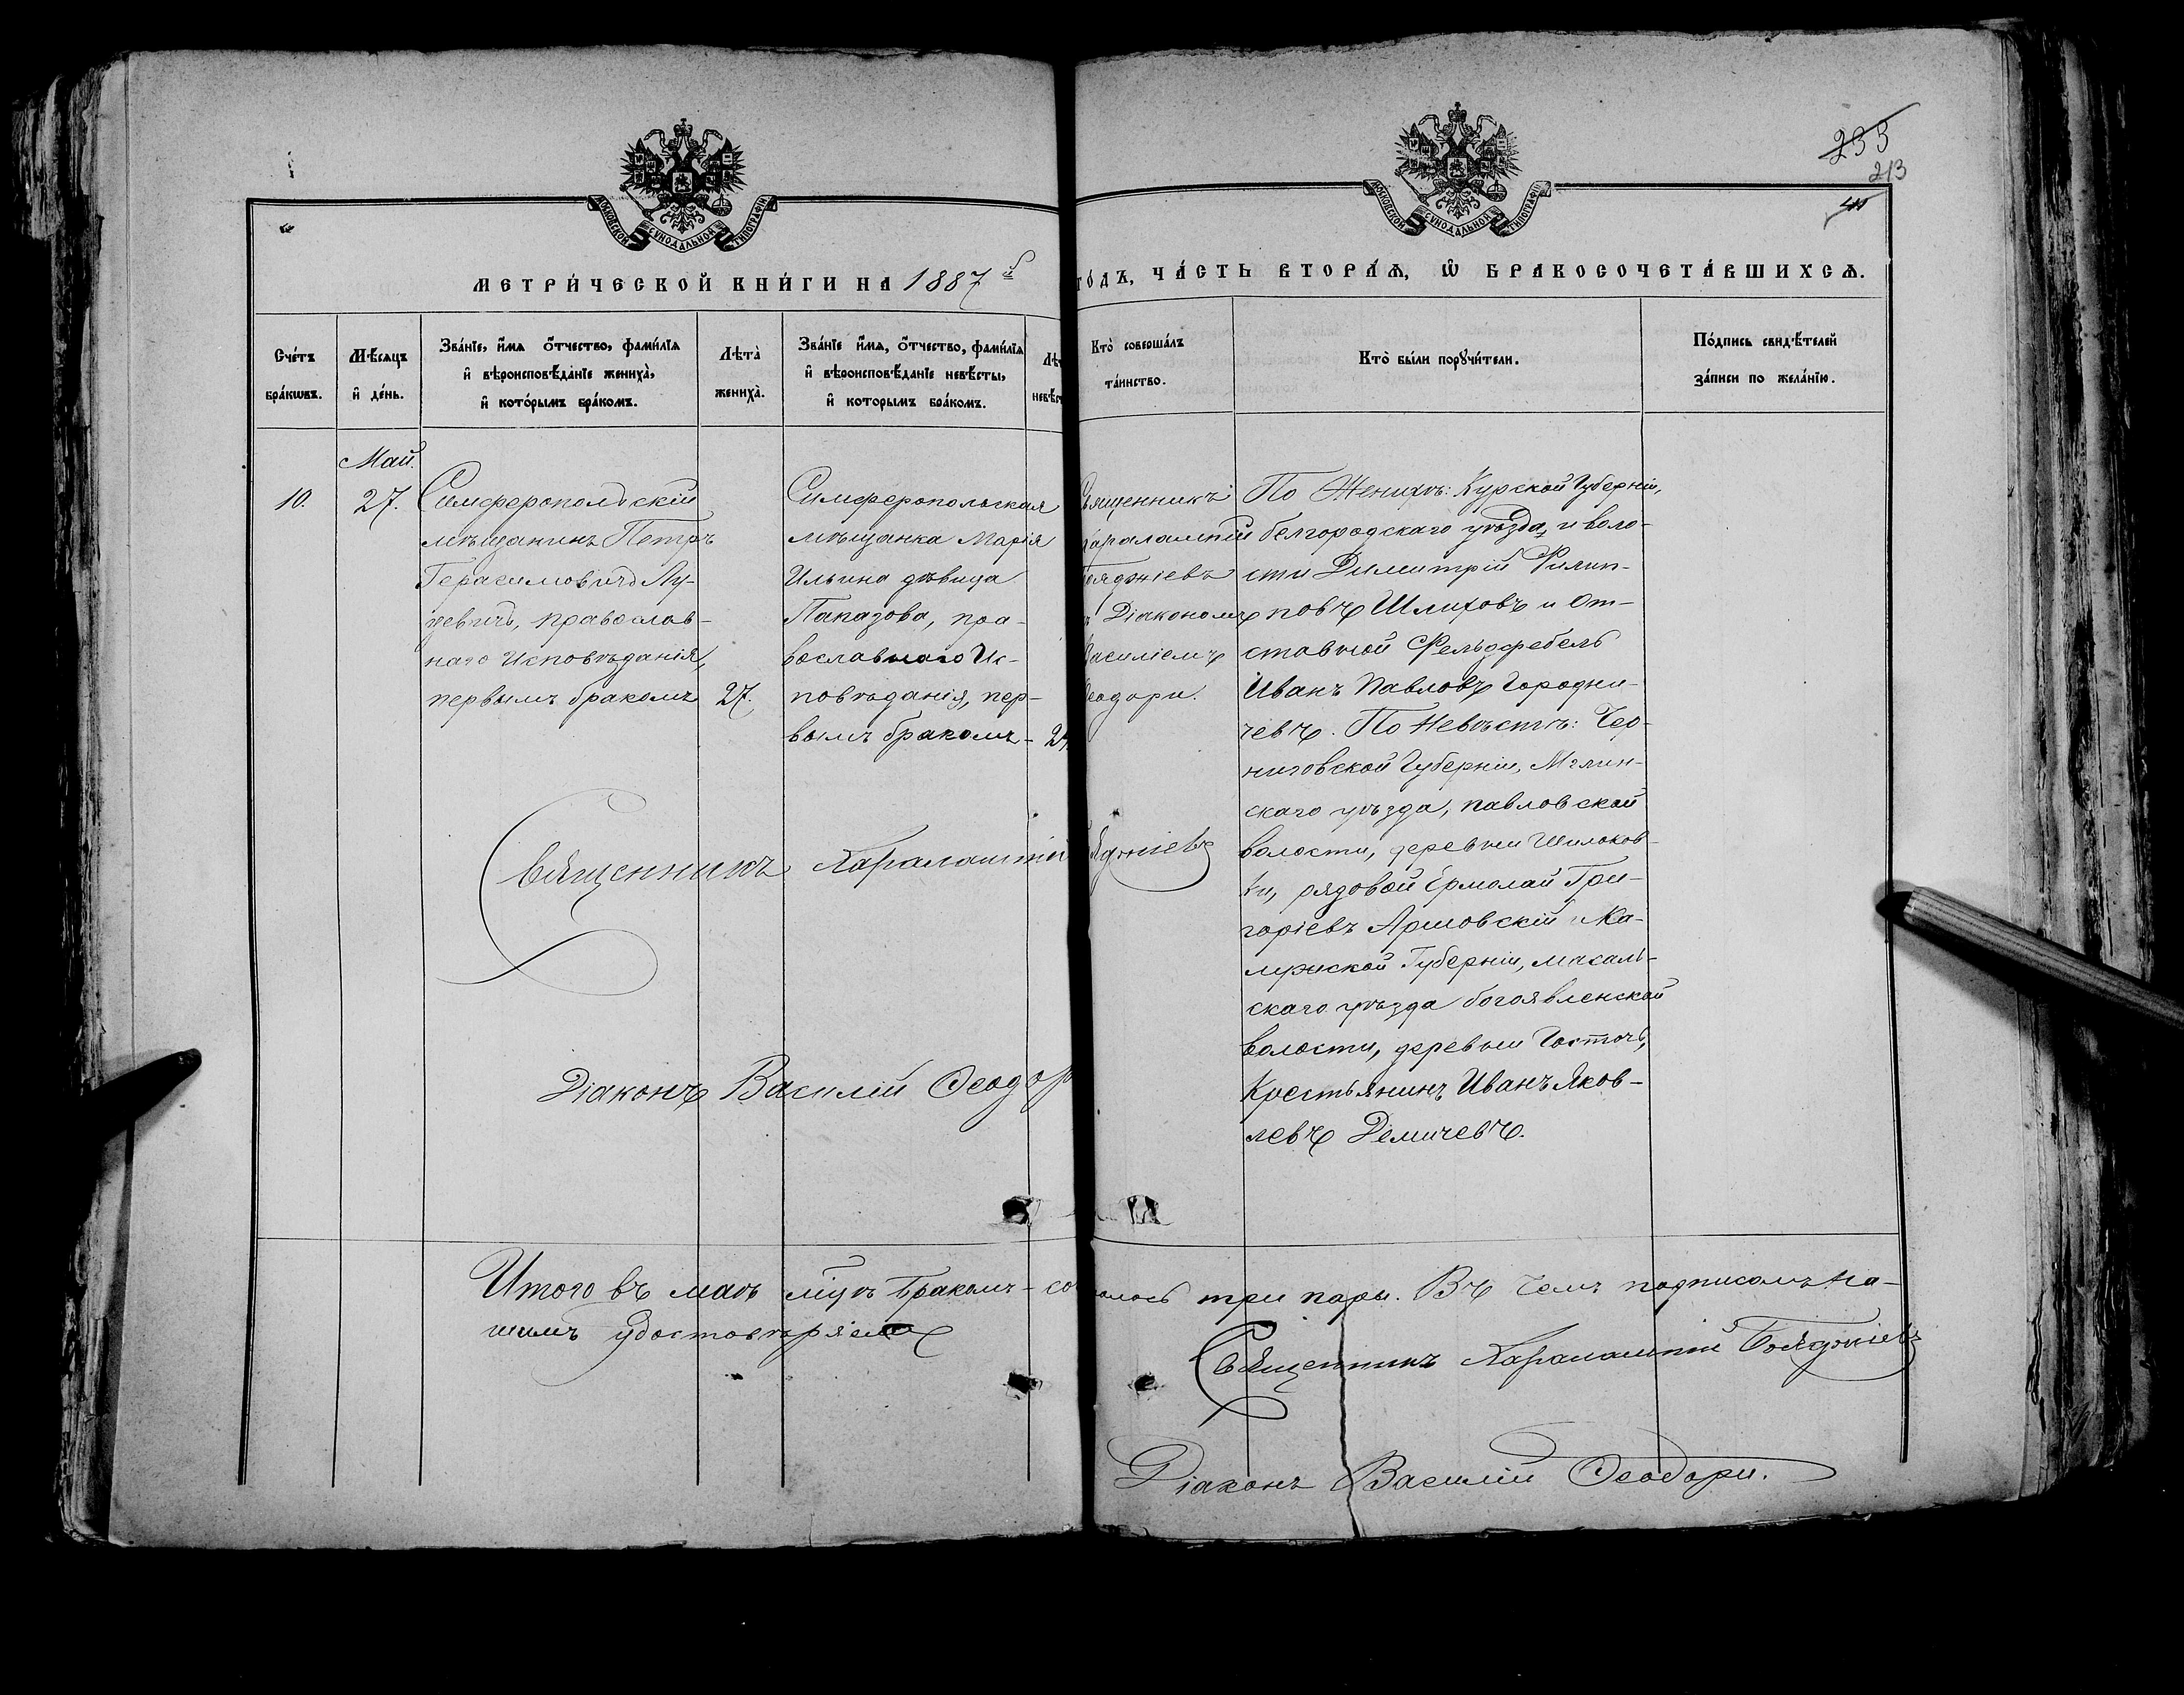 235
213
МОСКОВСКОЙ СѴНОДАЛЬНОЙ ТИПОГРАФІИ
МОСКОВСКОЙ СѴНОДАЛЬНОЙ ТИПОГРАФІИ
МЕТРИ́ЧЕСКОЙ КНИ́ГИ НА 1887 й
ГО́ДЪ, ЧА́СТЬ ВТОРА́Ѧ, Ѡ҆ БРАКОСОЧЕТА́ВШИХСѦ.
Сче́тъ бра́кѡвъ.
Мѣ́сѧцъ и҆ де́нь.
Зва́нїе, и҆́мѧ ѻ҆́тчество, фами́лїѧ
и҆ вѣроисповѣ́данїе жениха̀,
и҆ кото́рымъ бра́комъ.
Лѣта̀ жениха̀.
Зва́нїе и҆́мѧ, ѻ҆́тчество, фами́лїѧ
и҆ вѣроисповѣ́данїе невѣ́сты,
и҆ которымъ бра́комъ.
Кто̀ соверша́лъ
та́инство.
Кто̀ бы́ли порꙋчи́тели.
По́дпись свидѣ́телей
за́писи по жела́нїю.
Май.
10.
27.
Симферопольскій
мѣщанинъ Петръ
Герасимовичъ Лу-
цевичъ, православ-
наго Исповѣданія,
первымъ бракомъ
27.
Симферопольская
мѣщанка Марія
Ильина дѣвица
Папазова, пра-
вославнаго Ис-
повѣданія, пер-
вымъ бракомъ-
24
Священникъ
Харалампій
Бояджіевъ
съ Діакономъ
Василіемъ
Ѳеодори.
По Женихѣ: Курской Губерніи,
белгородскаго уѣзда, и воло-
сти Димитрій Филип-
повъ Шлиховъ и От-
ставной Фельдфебель
Иванъ Павловъ Городни-
чевъ. По Невѣстѣ: Чер-
ниговской Губерніи, Мглин-
скаго уѣзда, павловской
волости, деревни Шилоков-
ки, рядовой Ермолай Гри-
горіевъ Ярмовскій и Ка-
лужской Губерніи, масаль-
скаго уѣзда богоявленской
волости, деревни Госточь,
Крестьянинъ Иванъ Яков-
левъ Демичевъ.
Священникъ Харалампій Бояджіевъ
Діаконъ Василій Ѳеодор
Итого въ маѣ м͠цѣ бракомъ-со алось три пары. Въ чемъ подписомъ на-
шимъ удостовѣряемъ
Священникъ Харалампій Бояджіевъ
Діаконъ Василій Ѳеодори.